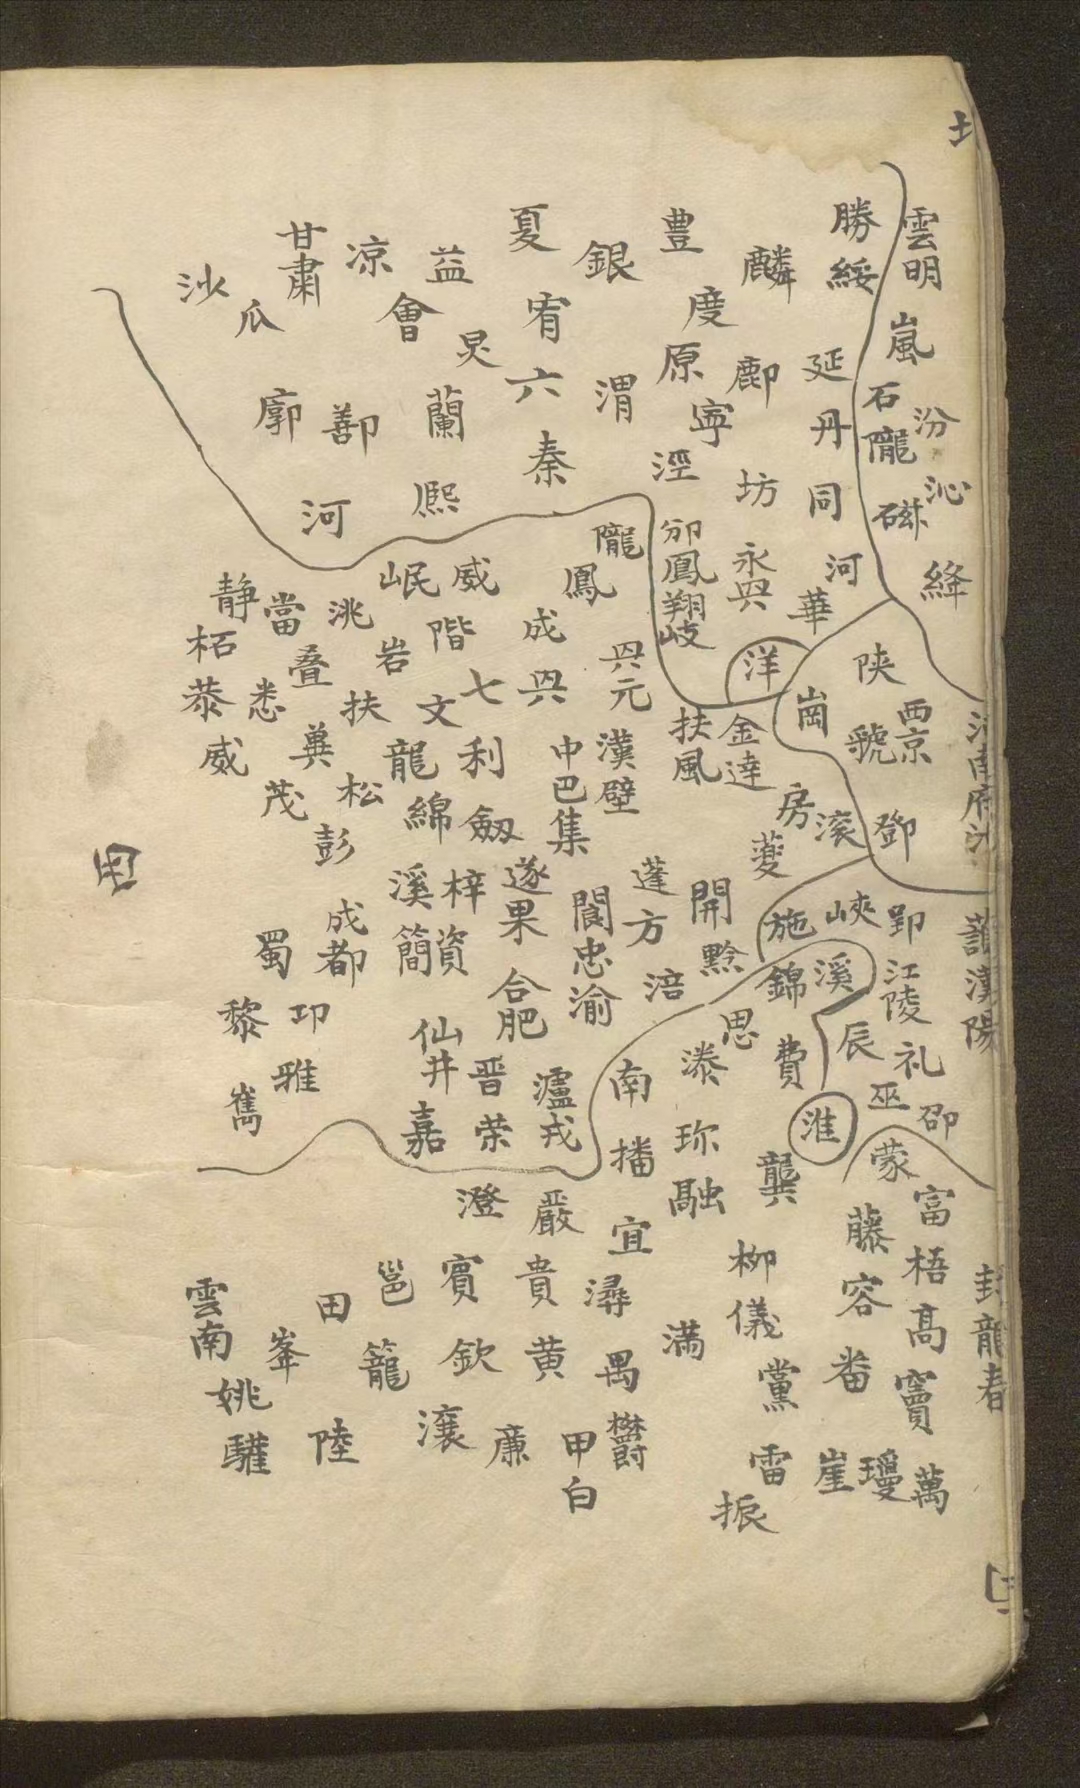 雲明
嵐
石隴
汾
沁
磁
絳
勝綏
延丹
同
河
華
麟
鄜
坊
永興
豊
度
原
寧
涇
邠鳳翔岐
銀
渭
夏
宥
六
秦
益
會
炅
蘭
熙
凉
甘肅
瓜
沙
廓
鄯
河
隴
鳳
成
興
興元
漢壁
中巴集
威
階
七
利
劔
岷
岩
文
龍
綿
洮
扶
松
當
叠
兾
彭
静
柘
恭
悉
威
茂
洋
陝
西京
虢
崗
鄧
扶風
金達
房
滚
夔
開
黔
蓬
方
涪
閬忠渝
遂果
合肥
梓
資
溪
簡
成都
蜀
黎
邛
雅
嶲
仙井
嘉
晋
荣
瀘戎
施
峽
郢
江陵
礼
錦
溪
辰
巫
邵
思
溱
費
淮
南
播
珎
融
龔
蒙
富
梧
髙
竇
萬
藤
容
畨
瓊
崖
柳
儀
黨
雷
振
宜
潯
禺
欝
滿
嚴
貴
黄
甲
白
澄
賓
欽
廉
邕
籠
瀼
田
陸
峯
雲南
姚
驩
漢陽
龍春